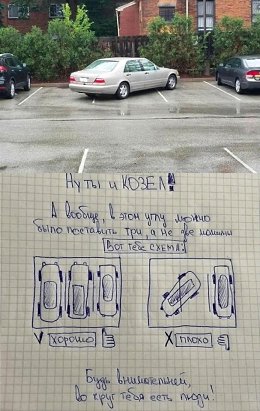 Ну ты и КОЗЕЛ!
А вообще, в этом углу можно
было поставить три, а не две машины
Вот тебе СХЕМА:
V хорошо
X плохо
Будь внимательней,
вокруг тебя есть люди!